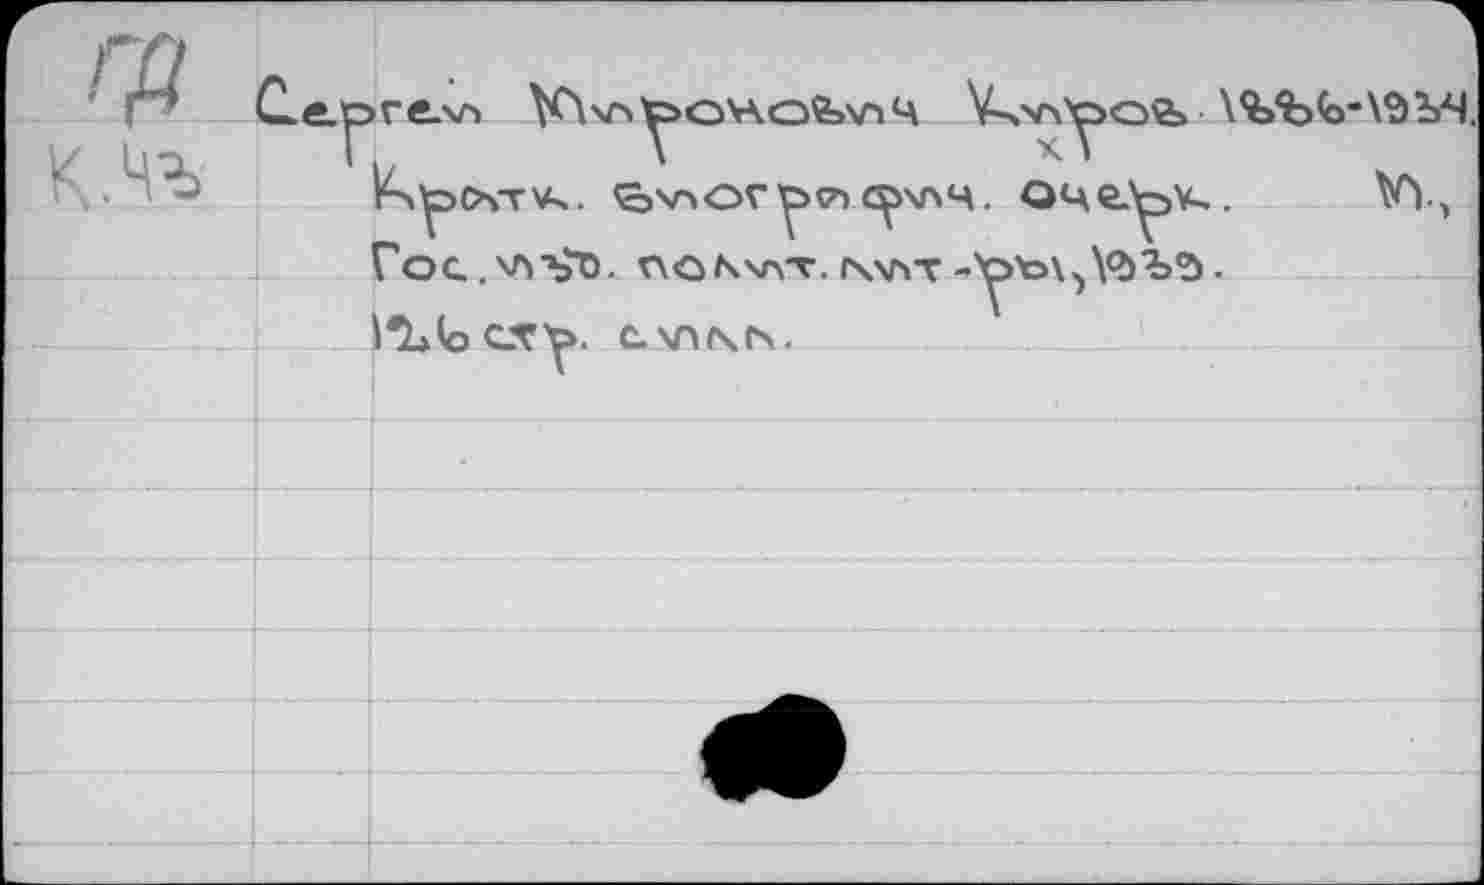 ГД
Сергей Миронович Киров 1886-1934.
К.ЧЪ
Кратк. биографич. очерк. М.,
Гос. изд. полит. лит-ры, 1939.
126 стр. с илл.